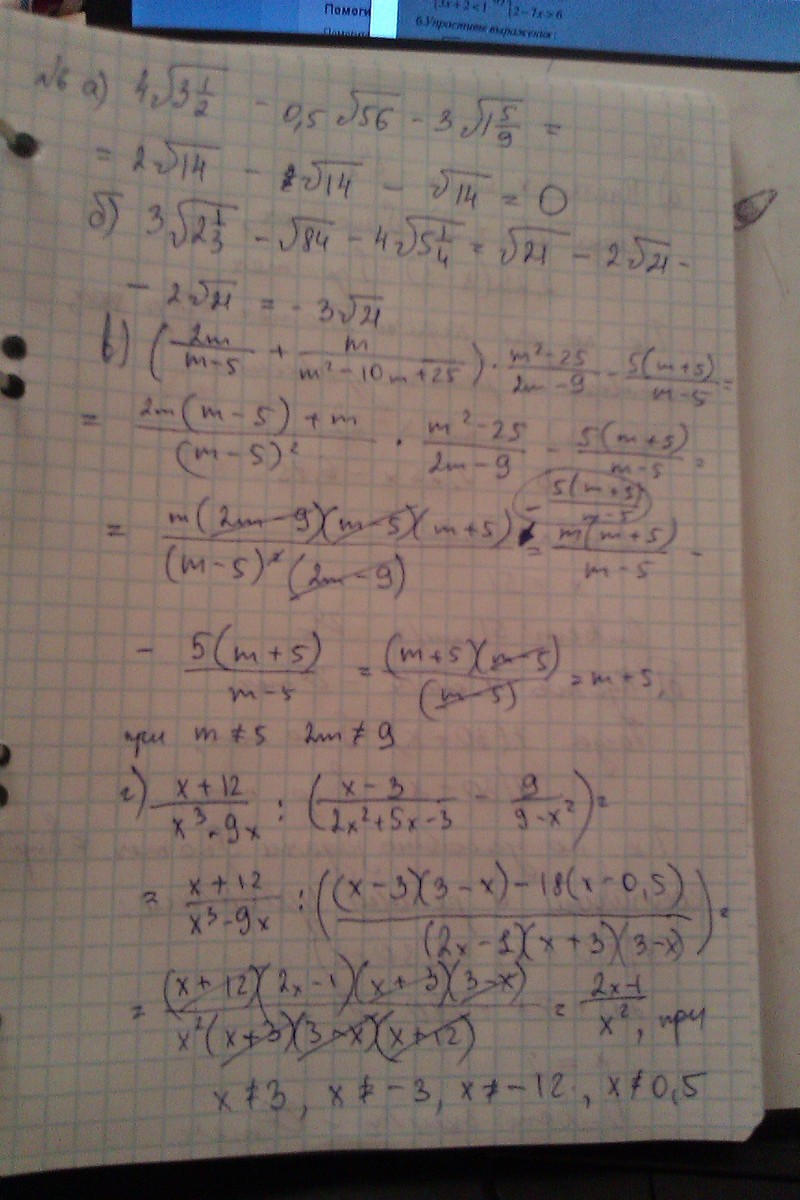 Помоги
3x+2<1
2-7x>6
6.Упростите выражения:
№6 а) 4√3 1/2 - 0,5√56 - 3√1 5/9 =
= 2√14 - √14 - √14 = 0
б) 3√2 1/3 - √84 - 4√5 1/4 = √21 - 2√21 -
- 2√21 = - 3√21
в) (2m/(m-5) + m/(m²-10m+25)) · (m²-25)/(2m-9) - 5(m+5)/(m-5) =
= (2m(m-5)+m)/(m-5)² · (m²-25)/(2m-9) - 5(m+5)/(m-5) =
= m(2m-9)(m-5)(m+5)/((m-5)²(2m-9)) - 5(m+5)/(m-5) = m(m+5)/(m-5) -
- 5(m+5)/(m-5) = (m+5)(m-5)/(m-5) = m+5,
при m≠5 2m≠9
г) (x+12)/(x³-9x) : ((x-3)/(2x²+5x-3) - 9/(9-x²)) =
= (x+12)/(x³-9x) : (((x-3)(3-x)-18(x-0,5))/((2x-1)(x+3)(3-x))) =
= (x+12)(2x-1)(x+3)(3-x)/(x²(x+3)(3-x)(x+12)) = (2x-1)/x², при
x≠3, x≠-3, x≠-12, x≠0,5